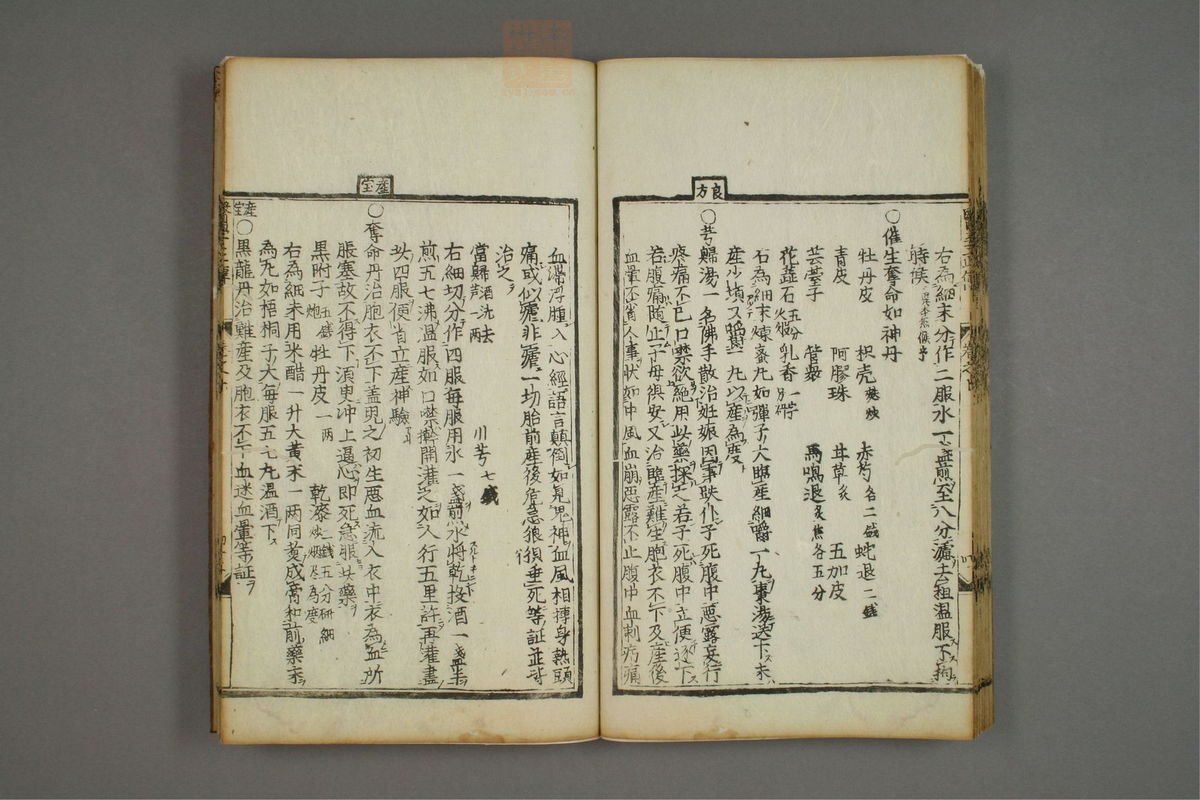 右為細末分作二服水一盞煎至八分濾去粗温服不拘
時候
○催生奪命如神丹
牡丹皮 枳壳 赤芍各二戔 蛇退二戔
青皮 阿膠珠 甘草炙 五加皮
芸薹子 管衆 馬鳴退炙焦各五分
花蘂石五分火煅 乳香一字另研
右為細末煉蜜丸如彈子大臨産細嚼一丸棗湯送下未
産少頃又嚼一丸以産為度
良方
○芎歸湯一名佛手散治妊娠因事趺仆子死腹中惡露妄行
疼痛不已口噤欲絶用此藥探之若子死腹中立便逐下
若腹痛随止子母俱安又治臨産難生胞衣不下及産後
血暈不省人事状如中風血崩惡露不止腹中血刺㽲痛
血滞浮腫入心經語言顛倒如見鬼神血風相搏身熱頭
痛或似瘧非瘧一切胎前産後危急狼狽垂死等証並皆
治之
當歸酒洗去芦一両 川芎七戔
右細切分作四服每服用水一戔煎水將乾投酒一盞半
煎五七沸温服如口噤斡開灌之如人行五里許再灌盡
以四服便省立産神驗
産宝
○奪命丹治胞衣不下盖児之初生惡血流入衣中衣為血所
脹塞故不得下須臾冲上逼心即死急服此藥
黒附子炮五戔 牡丹皮一両 乾漆二錢五分研細炒烟尽為度
右為細末用米醋一升大黄末一両同熬成膏和前藥末
為丸如梧桐子大每服五七丸温酒下
産宝
○黒龍丹治難産及胞衣不下血迷血暈等証